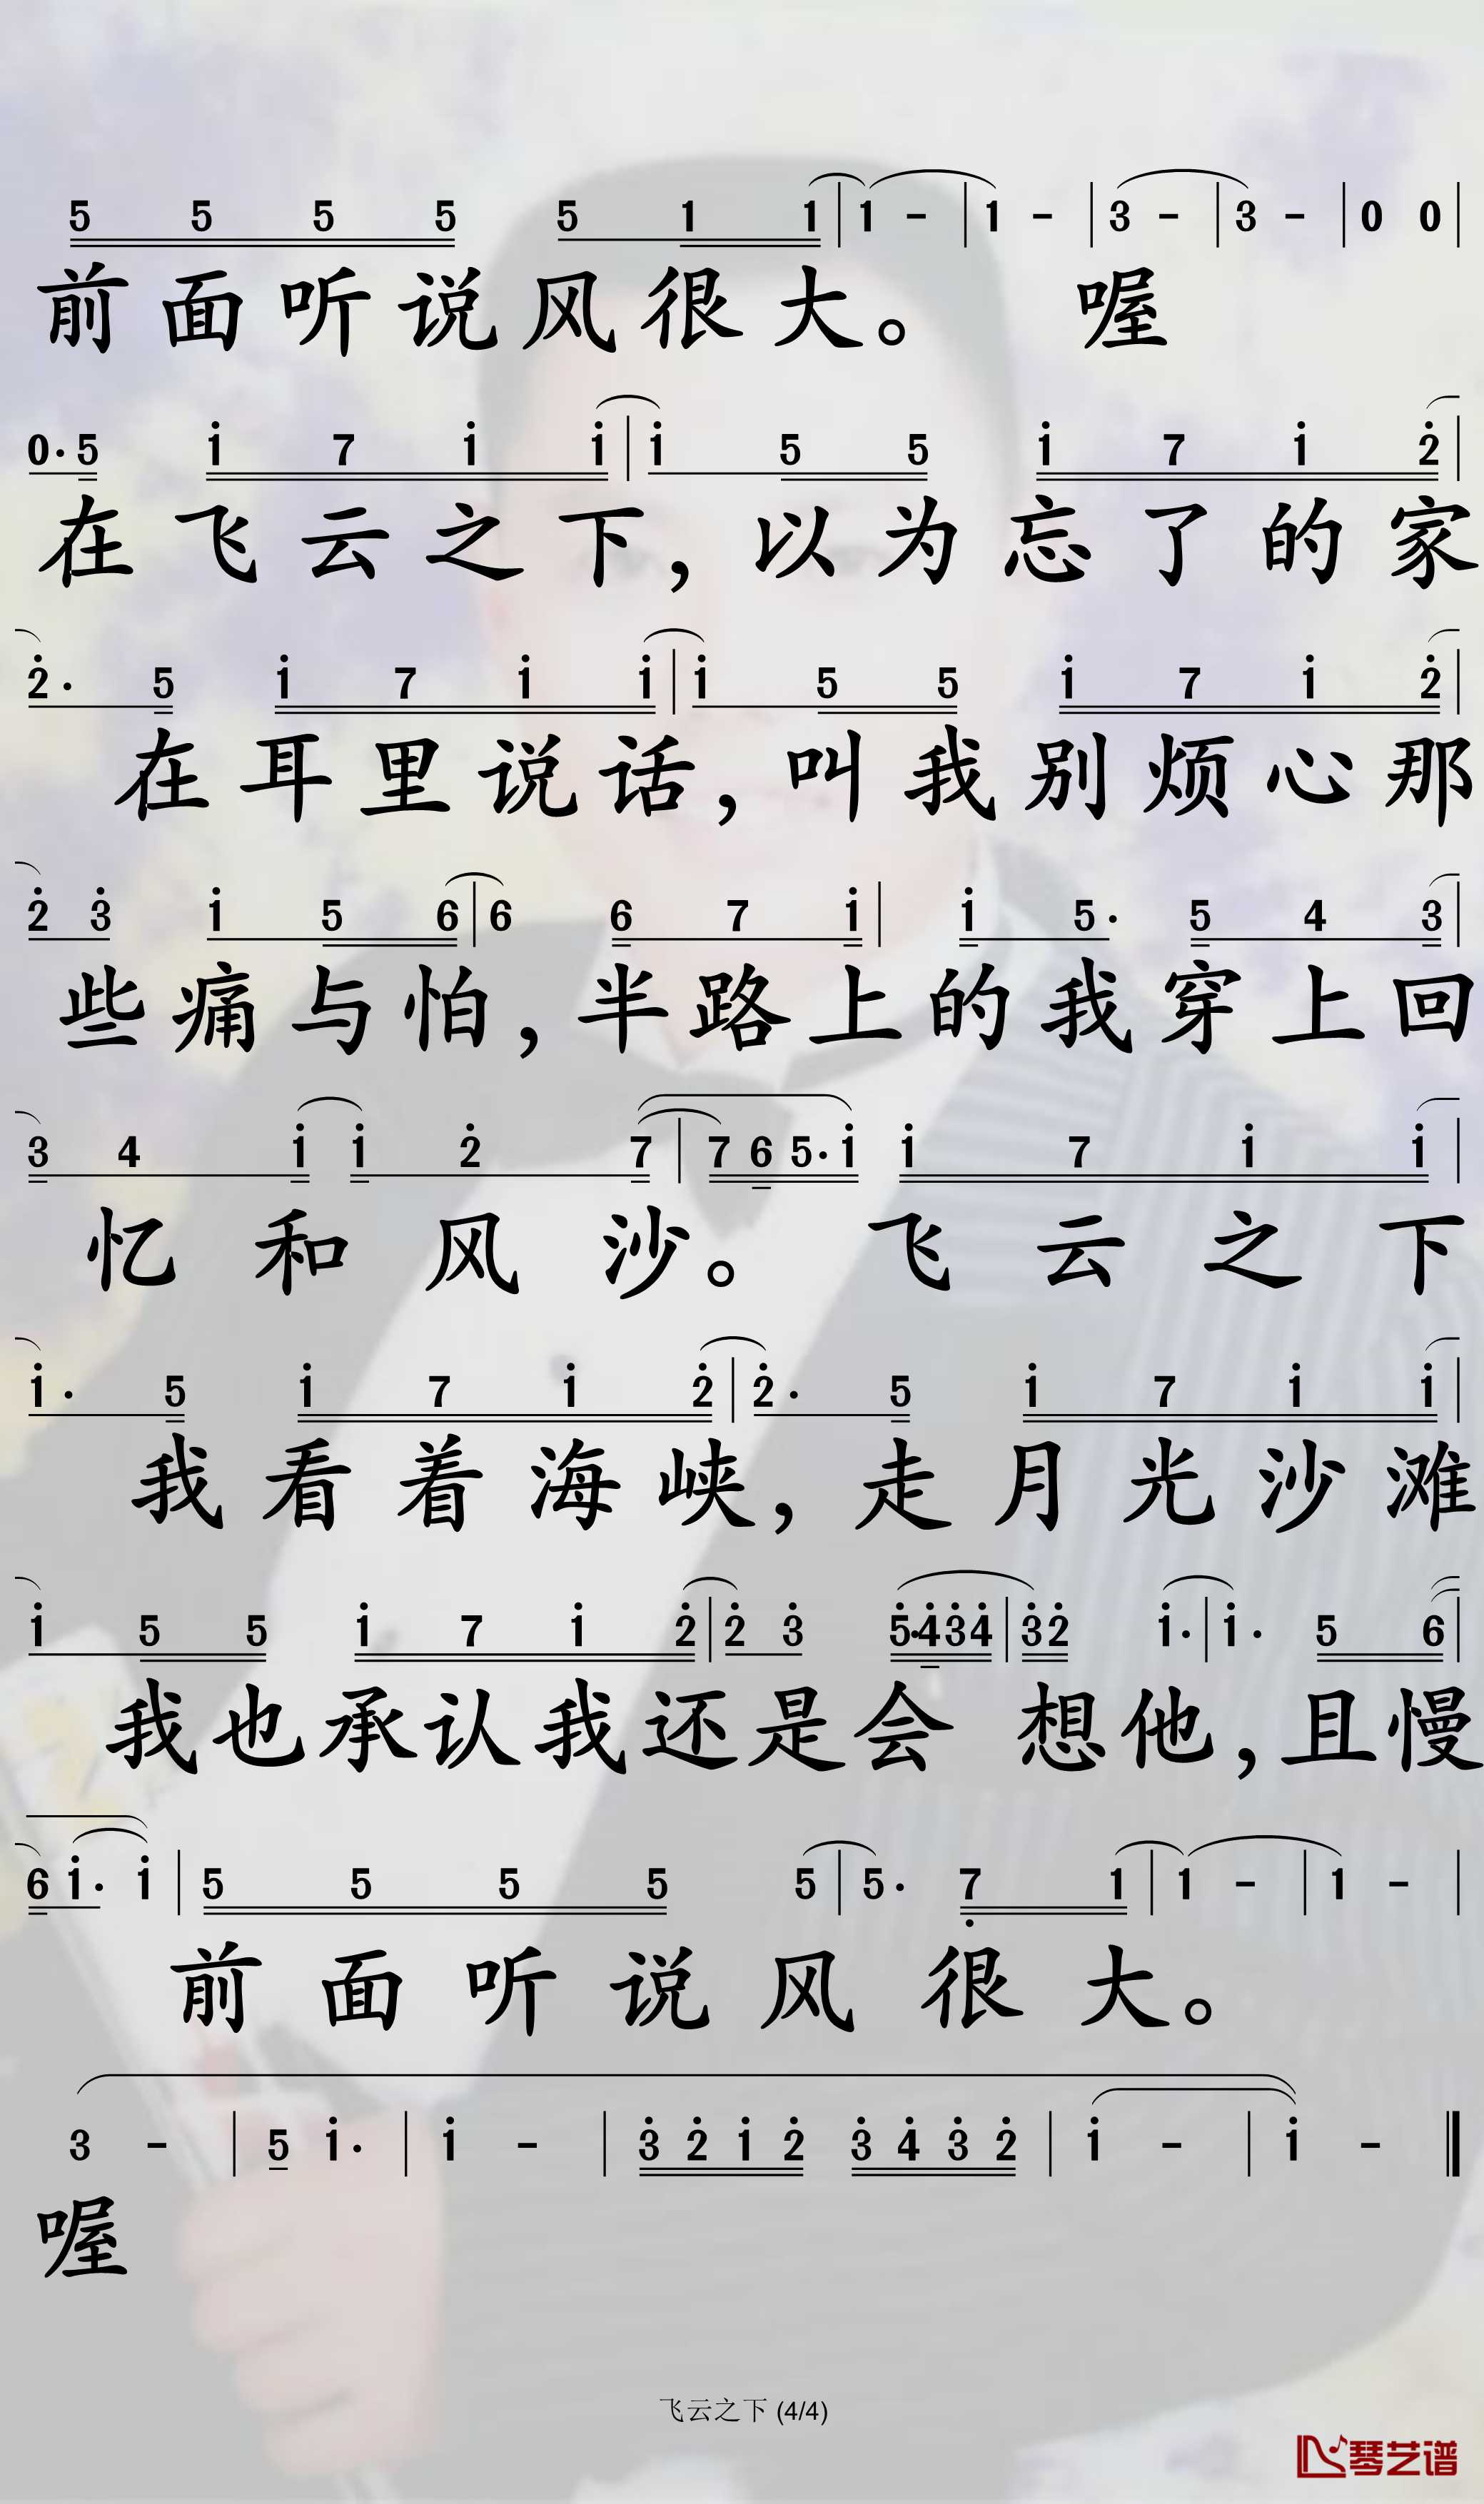 5 5 5 5 5 1 1 | 1 - | 1 - | 3 - | 3 - | 0 0 |
前面听说风很大。 喔
0· 5 i 7 i i | i 5 5 i 7 i 2̇ |
在飞云之下,以为忘了的家
2̇· 5 i 7 i i | i 5 5 i 7 i 2̇ |
在耳里说话,叫我别烦心那
2̇ 3̇ i 5 6 | 6 6 7 i | i 5· 5 4 3 |
些痛与怕,半路上的我穿上回
3 4 i i 2̇ 7 | 7 6 5· i i 7 i i |
忆和风沙。飞云之下
i· 5 i 7 i 2̇ | 2̇· 5 i 7 i i |
我看着海峡,走月光沙滩
i 5 5 i 7 i 2̇ | 2̇ 3̇ 5̇· 4̇ 3̇ 4̇ | 3̇ 2̇ i· | i· 5 6 |
我也承认我还是会 想他,且慢
6 i· i | 5 5 5 5 5 | 5· 7̣ 1 | 1 - | 1 - |
前面听说风很大。
3 - | 5 i· | i - | 3̇ 2̇ i 2̇ 3̇ 4̇ 3̇ 2̇ | i - | i - ‖
喔
飞云之下 (4/4)
琴艺谱